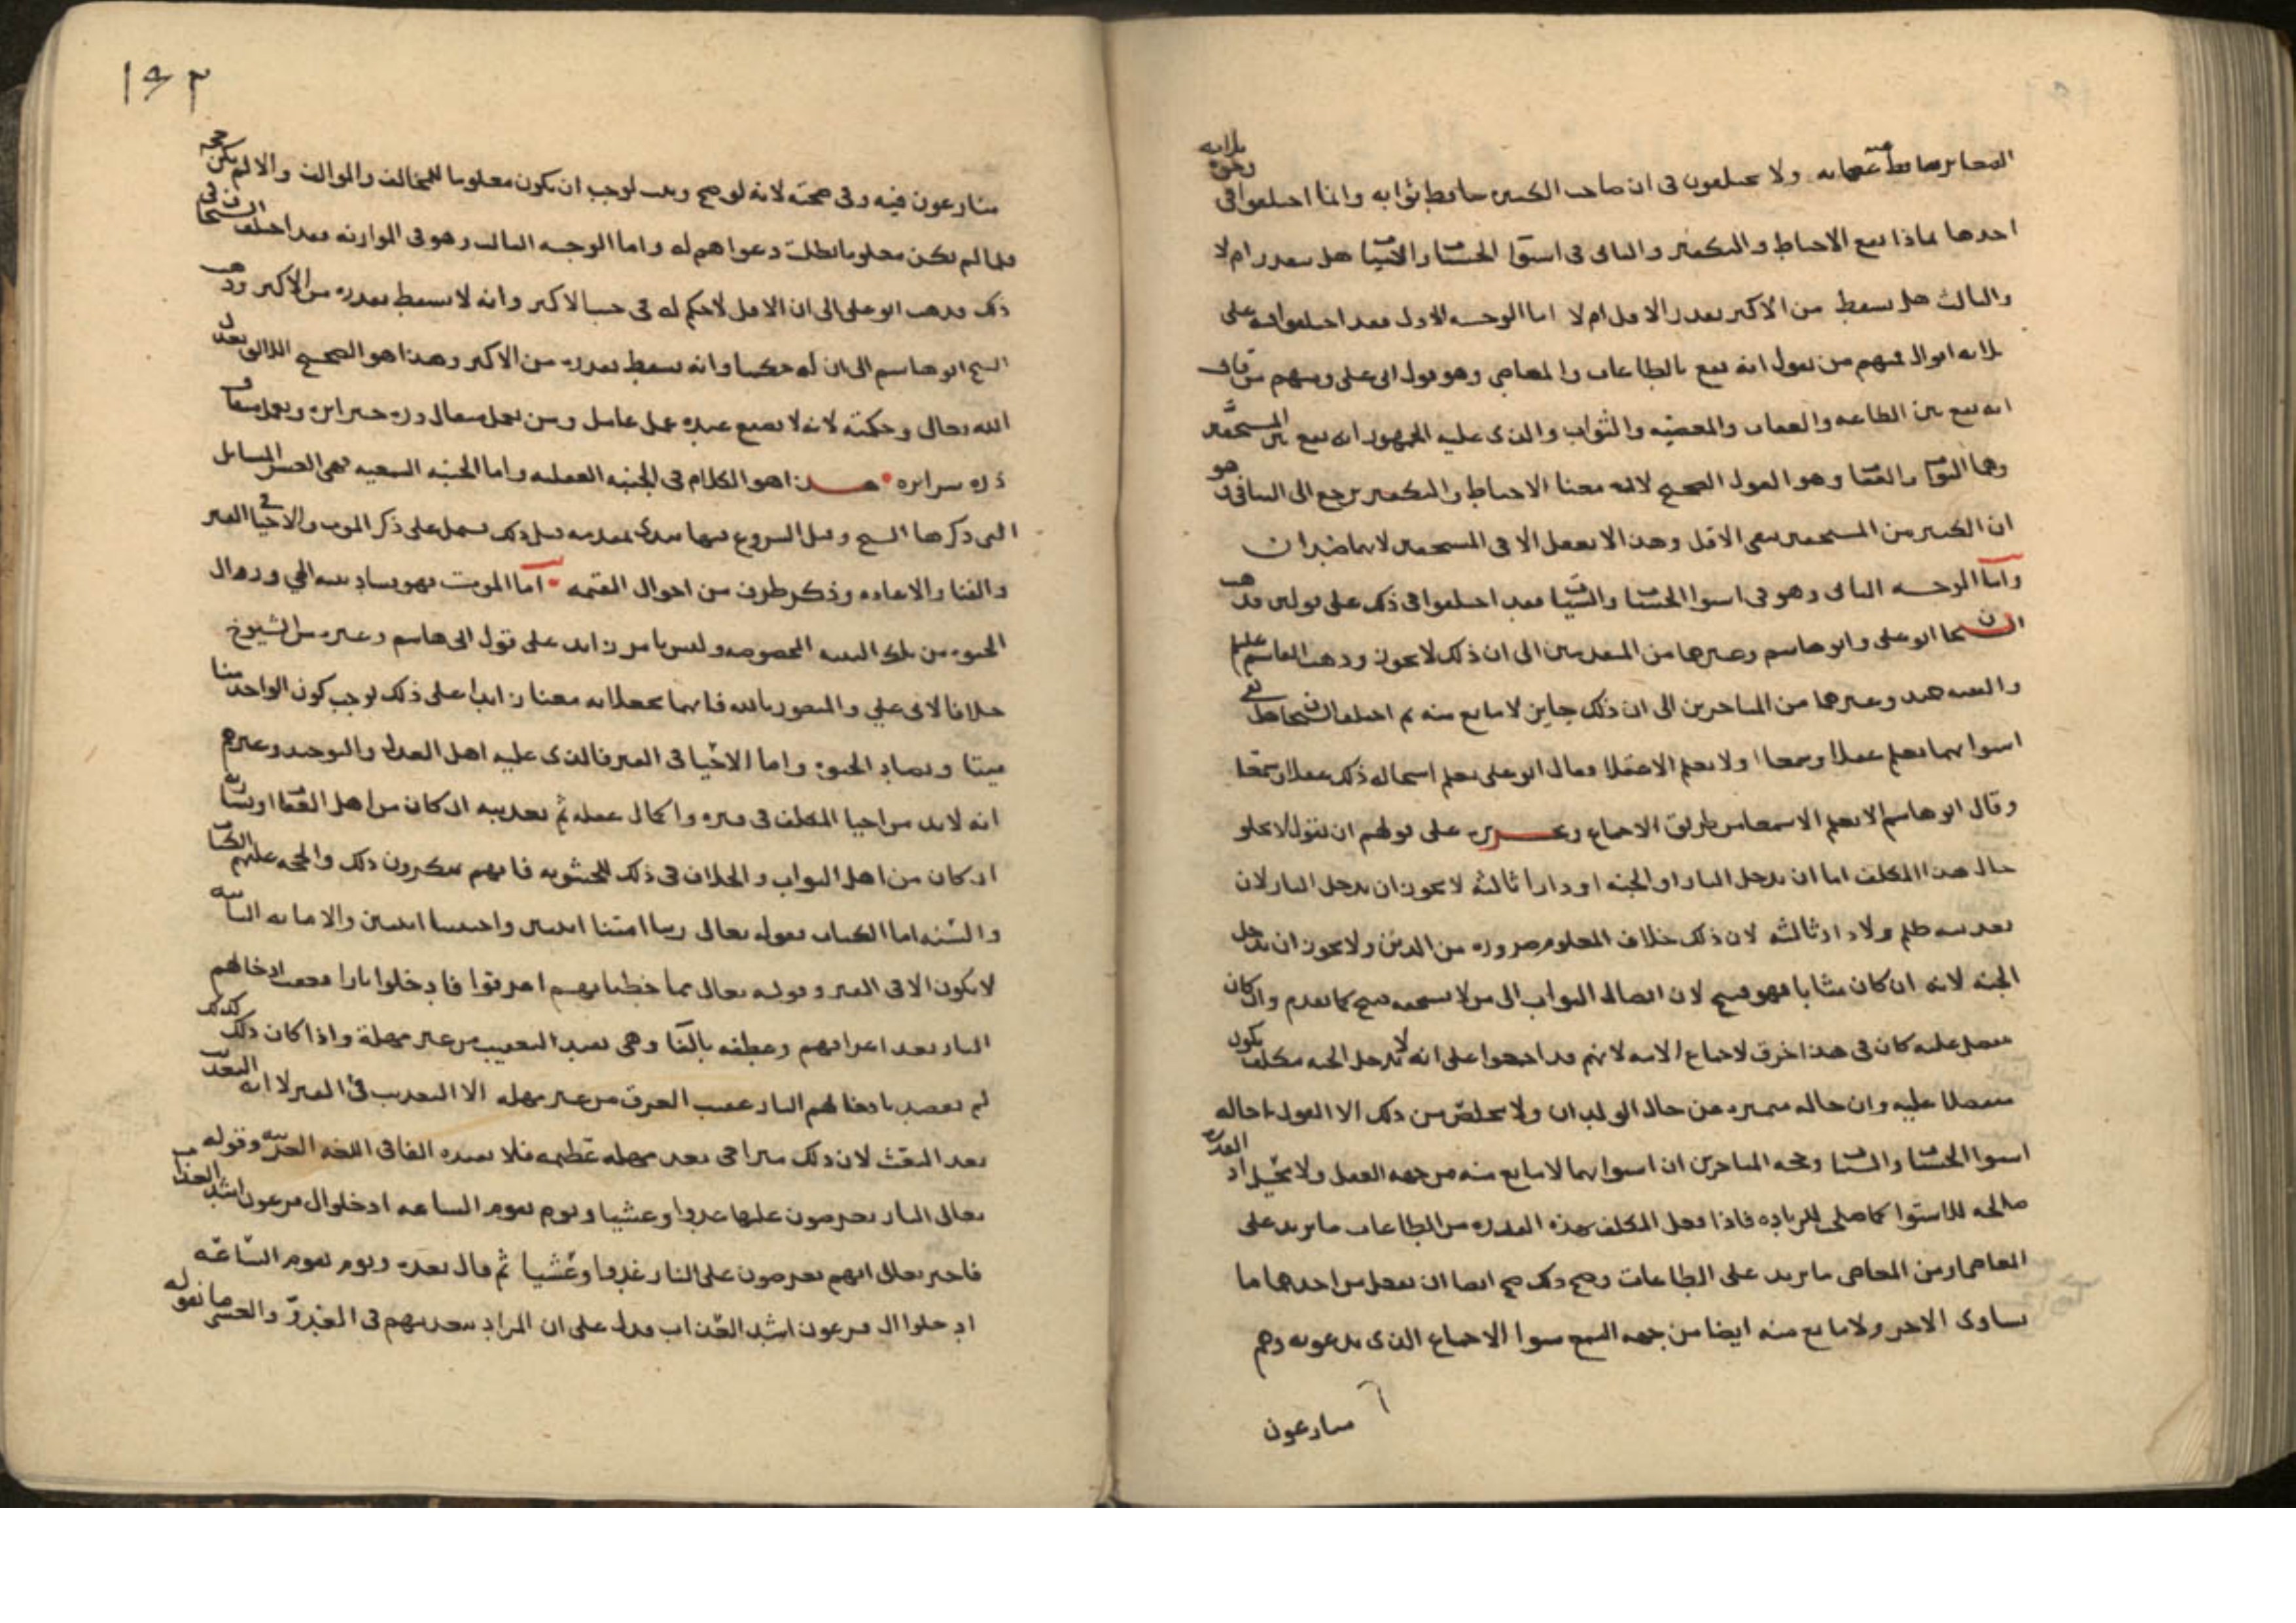 الصغاير ساقط عقابه ولا يختلفون فى ان صاحب الكبيره ساقط ثوابه وانما اختلفوا فى ثلاثة وجوه
احدها بماذا يقع الاحباط والتكفير والثانى فى استوا الحسنات والسيئات هل يتقدر ام لا
والثالث هل يسقط من الاكثر بقدر الاقل ام لا اما الوجه الاول فقد اختلفوا فيه على
ثلاثه اقوال فمنهم من يقول انه يقع بالطاعات والمعاصى وهو قول ابى على ومنهم من قال
انه يقع بين الطاعه والعقاب والمعصيه والثواب والذى عليه الجمهور انه يقع بين المستحقين
وهما الثواب والعقاب وهو القول الصحيح لان معنا الاحباط والتكفير يرجع الى التنافى وهو
ان الكثير من المستحقين ينفى الاقل وهذا لا يعقل الا فى المستحقين لانهما ضدان
واما الوجه الثانى وهو فى استوا الحسنات والسيئات فقد اختلفوا فى ذلك على قولين فذهب
الشيخان ابو على وابو هاشم وغيرهما من المتقدمين الى ان ذلك لا يجوز وذهب القاسم عليلم
والفقيه حميد وغيرهما من المتاخرين الى ان ذلك جايز لا مانع منه ثم اختلف الشيخان هل
استوايهما يعلم عقلا وسمعا او لا يعلم الا عقلا فقال ابو على يعلم استحاله ذلك عقلا وسمعا
وقال ابو هاشم لا يعلم الا سمعا من طريق الاجماع وتحريره على قولهم ان نقول لا يخلو
حال هذا المكلف اما ان يدخل النار او الجنه او دارا ثالثة لا يجوز ان يدخل النار لان
تعذيبه ظلم ولا دار ثالثه لان ذلك خلاف المعلوم ضروره من الدين ولا يجوز ان يدخل
الجنه لانه ان كان مثابا فهو قبيح لان ايصال الثواب الى من لا يستحقه قبيح كما تقدم وان كان
متفضل عليه كان فى هذا خرق لاجماع الامه لانهم قد اجمعوا على انه لا يدخل الجنه مكلف يكون
متفضلا عليه وان حاله متميزه عن حال الولدان ولا مخلص من ذلك الا القول باحاله
استوا الحسنات والسيات وحجه المتاخرين ان استوايهما لا مانع منه من جهه العقل ولا تخيل اذ القدره
صالحه للاستوا كما صلحت للزياده فاذا فعل المكلف بهذه القدره من الطاعات ما يزيد على
المعاصى ومن المعاصى ما يزيد على الطاعات وصح ذلك صح ايضا ان يفعل من احدهما ما
يساوى الاخر ولا مانع منه ايضا من جهه السمع سوا الاجماع الذى يدعونه وهم
منازعون
١٩٣
منازعون فيه وفى صحته لانه لو صح وثبت لوجب ان يكون معلوما للمخالف والموالف والا لم يكن حجه
فلما لم يكن معلوما بطلت دعواهم له واما الوجه الثالث وهو فى الموازنه فقد اختلف الشيخان فى
ذلك فذهب ابو على الى ان الاقل لا حكم له فى جنب الاكثر وانه لا يسقط بقدره من الاكثر وذهب
الشيخ ابو هاشم الى ان له حكما وانه يسقط بقدره من الاكثر وهذا هو الصحيح اللايق بعدل
الله تعالى وحكمته لانه لا يضيع عنده عمل عامل ومن يعمل مثقال ذره خيرا يره ومن يعمل مثقال
ذره شرا يره هذا هو الكلام فى الجنبه العقليه واما الجنبه السمعيه فهى العشر المسايل
التى ذكرها الشيخ وقبل الشروع فيها نبدى بمقدمه قبل ذلك تشتمل على ذكر الموت والاحيا فى القبر
والفنا والاعاده وذكر طرف من احوال القيمه اما الموت فهو فساد بنيه الحى وزوال
الحيوه من تلك البنيه المخصوصه وليس بامر زايد على قول ابى هاشم وغيره من الشيوخ
خلافا لابى على والمنصور بالله فانهما يجعلانه معنا زايدا على ذلك يوجب كون الواحد منا
ميتا ويضاد الحيوه واما الاحيا فى القبر فالذى عليه اهل العدل والتوحيد وغيرهم
انه لا بد من احيا المكلف فى قبره واكمال عقله ثم تعذيبه ان كان من اهل العقاب او بشارته
ان كان من اهل الثواب والخلاف فى ذلك للحشويه فانهم ينكرون ذلك والحجه عليهم الكتاب
والسنه اما الكتاب فقوله تعالى ربنا امتنا اثنتين واحييتنا اثنتين والاماته الثانيه
لا تكون الا فى القبر وقوله تعالى مما خطياتهم اغرقوا فادخلوا نارا فعقب ادخالهم
النار بعد اغراقهم وعطفه بالفا وهى تفيد التعقيب من غير مهلة واذا كان ذلك كذلك
لم يقصد بادخالهم النار عقيب الغرق من غير مهله الا التعذيب فى القبر لا انه التعذيب
بعد البعث لان ذلك متراخى بعد مهله عظيمه فلا تفيده الفا فى اللغه العربيه وقوله
تعالى النار يعرضون عليها غدوا وعشيا ويوم تقوم الساعه ادخلوا ال فرعون اشد العذاب
فاخبر تعالى انهم يعرضون على النار غدوا وعشيا ثم قال بعده ويوم تقوم الساعه
ادخلوا ال فرعون اشد العذاب فدل على ان المراد تعذيبهم فى الغدو والعشى ما نقوله